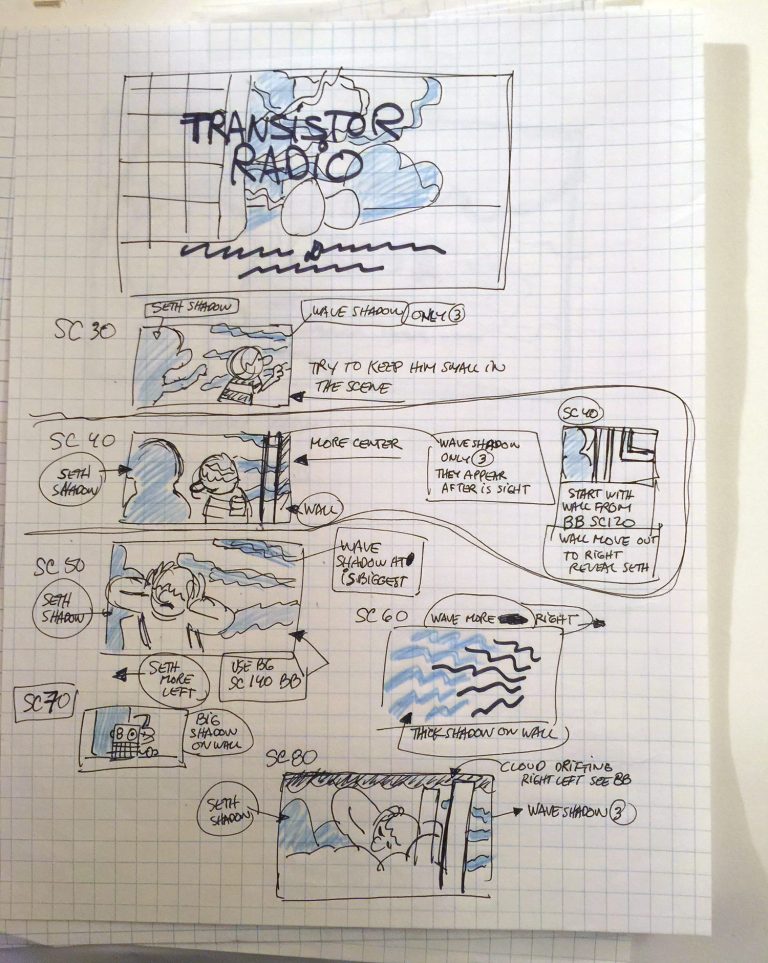 TRANSISTOR
RADIO
SETH SHADOW
WAVE SHADOW ONLY 3
SC 30
TRY TO KEEP HIM SMALL IN
THE SCENE
SC 40
SETH
SHADOW
MORE CENTER
WALL
WAVE SHADOW
ONLY 3
THEY APPEAR
AFTER IS SIGHT
SC 40
START WITH
WALL FROM
BB SC120
WALL MOVE OUT
TO RIGHT
REVEAL SETH
SC 50
SETH
SHADOW
WAVE
SHADOW AT
IS BIGGEST
SETH
MORE
LEFT
USE BG
SC 140 BB
SC 60
WAVE MORE RIGHT
THICK SHADOW ON WALL
SC 70
BIG
SHADOW
ON WALL
SC 80
SETH
SHADOW
CLOUD DRIFTING
RIGHT LEFT SEE BB
WAVE SHADOW 3